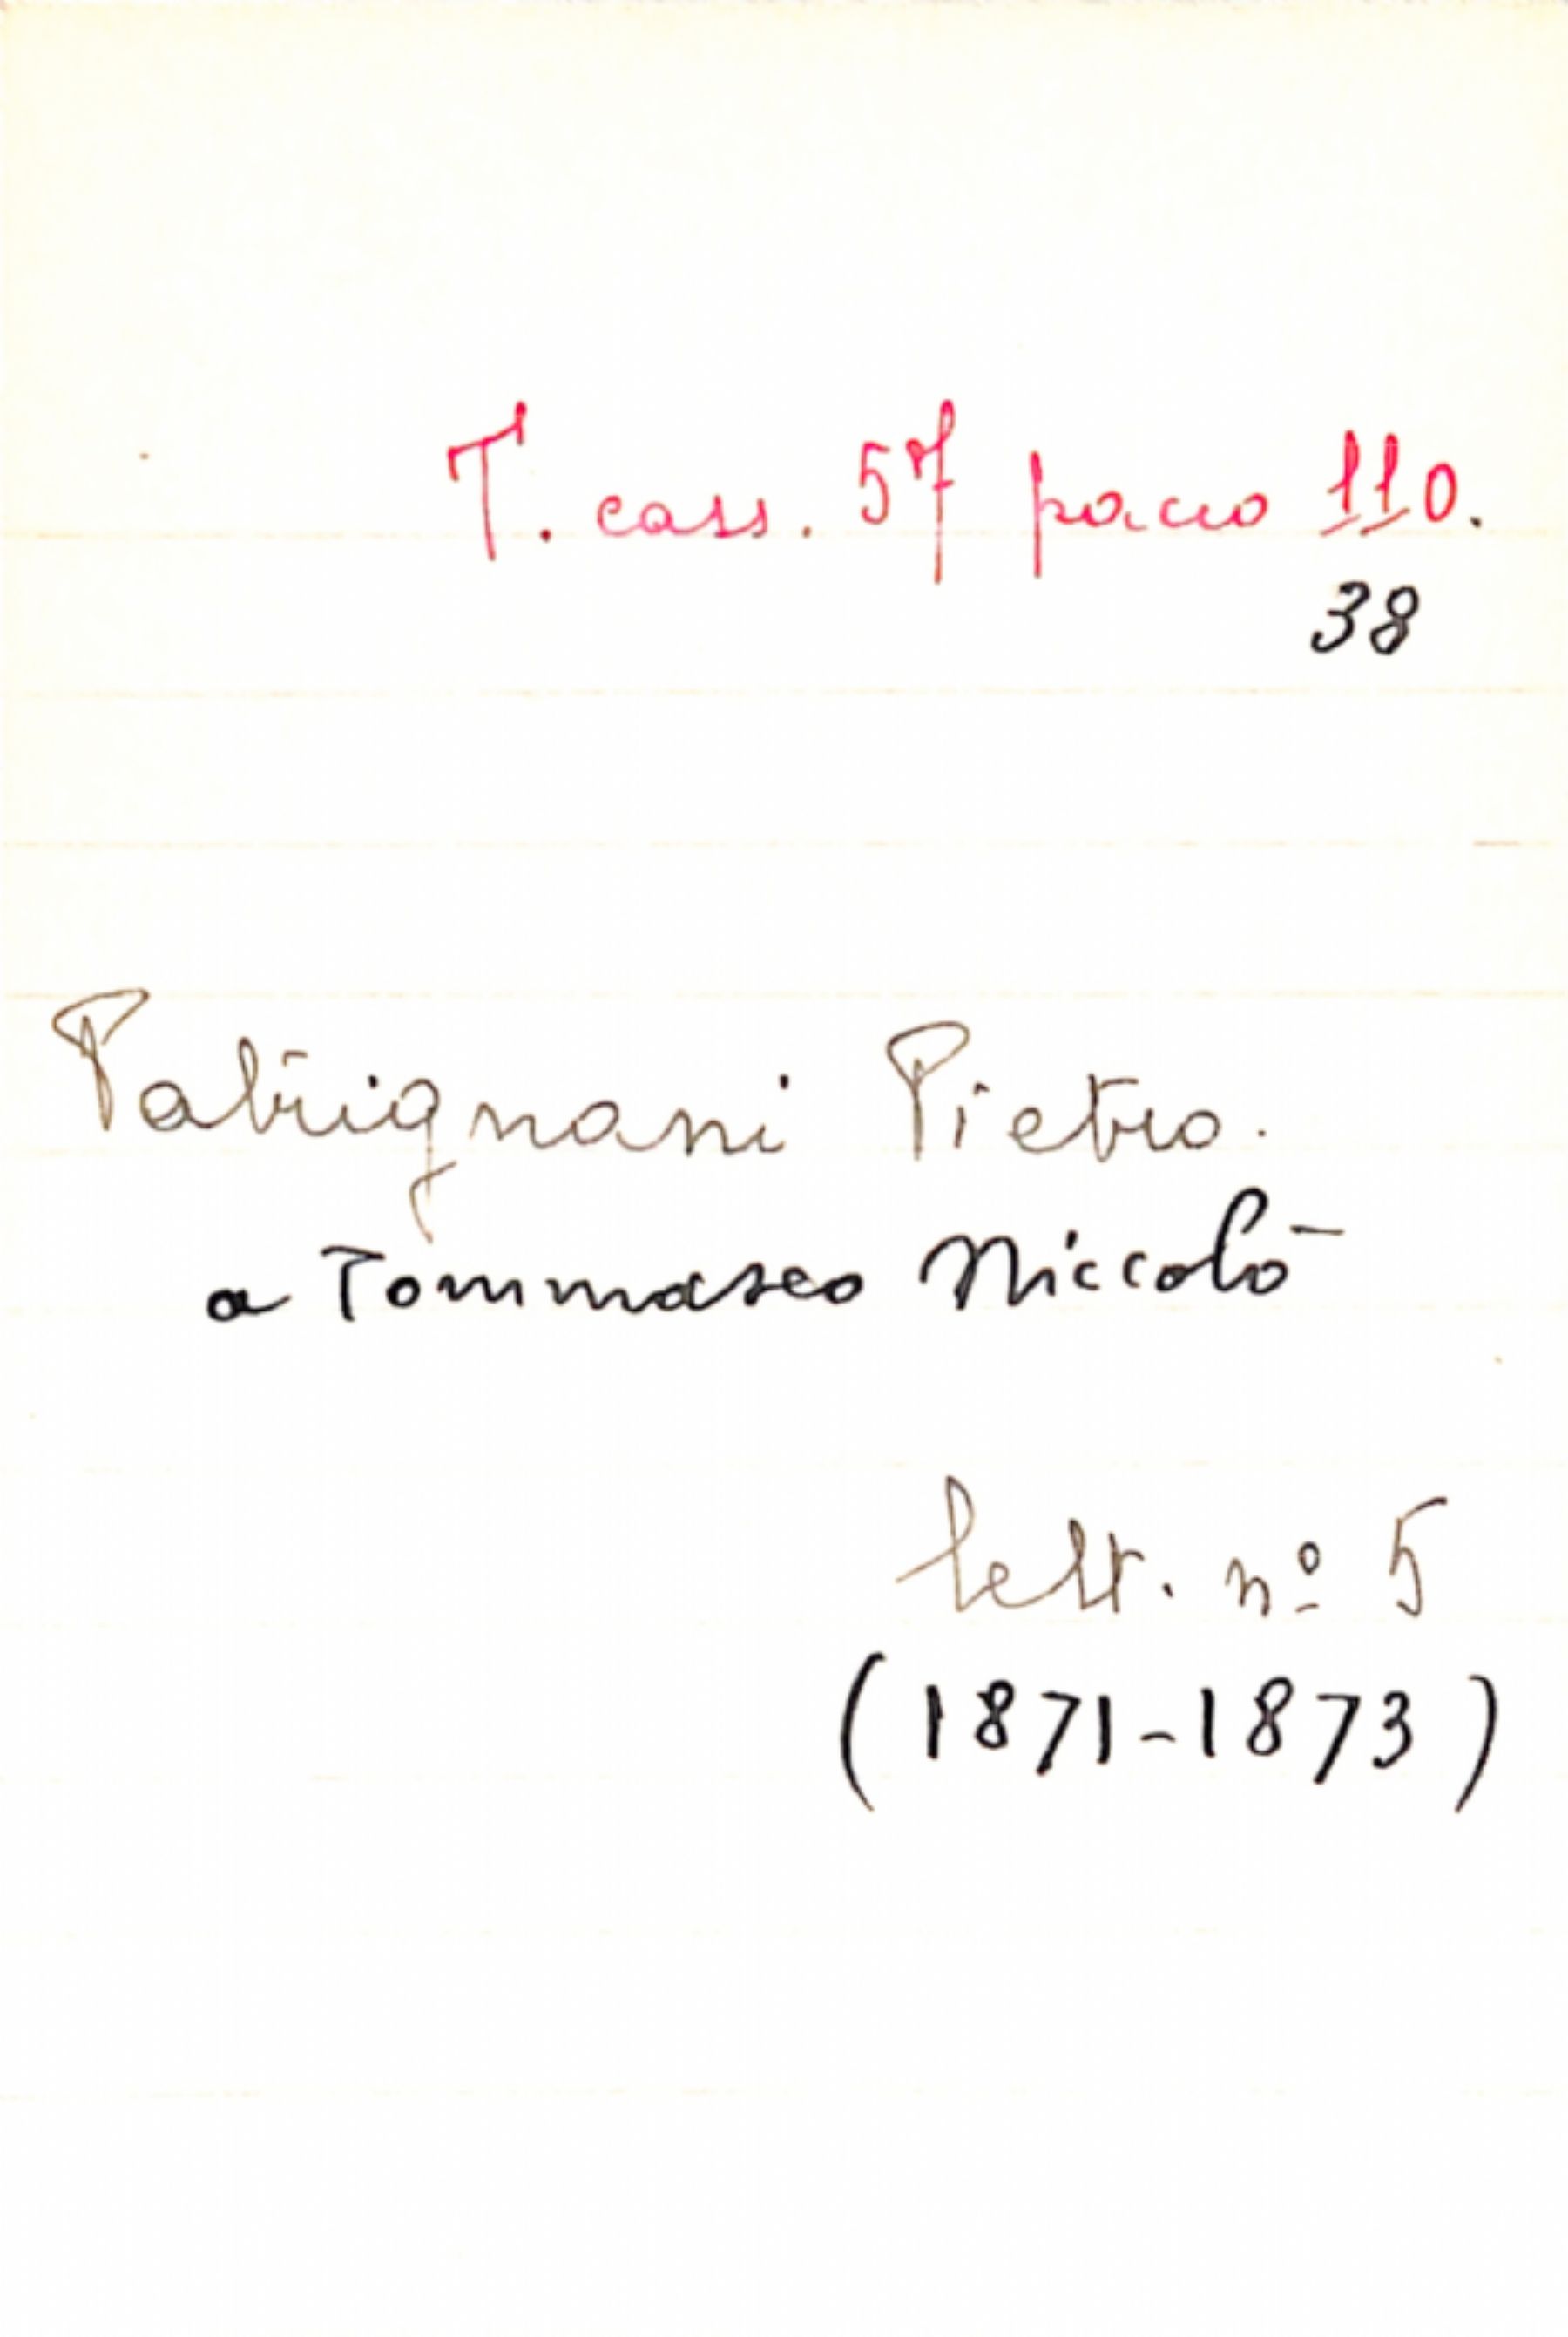 T. cass. 57 pacco 110.
38
Patrignani Pietro.
a Tommaseo Niccolò
lett. nº 5
(1871-1873)